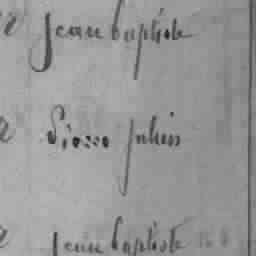 Jean baptiste
Pierre Julien
Jean baptiste